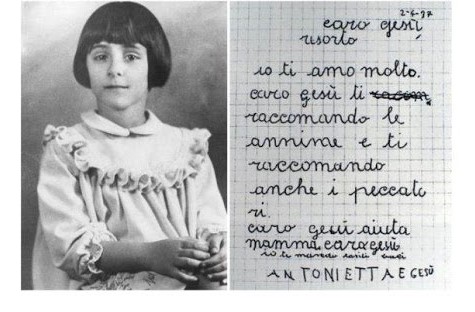 2-4-37
caro gesù
risorto
io ti amo molto.
caro gesù ti
raccomando le
annime e ti
raccomando
anche i peccato
ri.
caro gesù aiuta
mamma. caro gesù
io ti mando tanti baci
ANTONIETTA E GESÙ